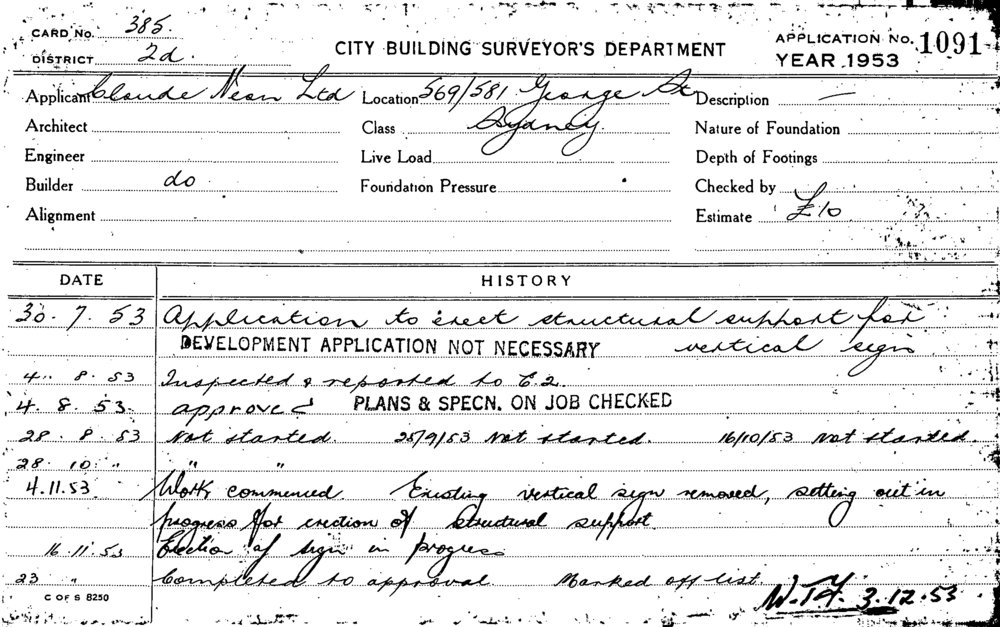 CARD No. 385.
DISTRICT 2d.
CITY BUILDING SURVEYOR'S DEPARTMENT
APPLICATION No. 1091
YEAR 1953
Applicant Claude Neon Ltd
Location 569/581 George St
Sydney.
Description —
Architect
Class
Nature of Foundation
Engineer
Live Load
Depth of Footings
Builder do
Foundation Pressure
Checked by
Alignment
Estimate £10
DATE
HISTORY
30. 7. 53 Application to erect structural support for
DEVELOPMENT APPLICATION NOT NECESSARY vertical sign
4. 8. 53 Inspected & reported to
4. 8. 53. approved PLANS & SPECN. ON JOB CHECKED
28. 8. 53 Not started. 25/9/53 Not started. 16/10/53 Not started.
28. 10. " " "
4.11.53 Work commenced Existing vertical sign removed, setting out in
progress for erection of structural support
16.11.53 Erection of sign in progress
23 " Completed to approval. Marked off list.
C OF S 8250
3.12.53